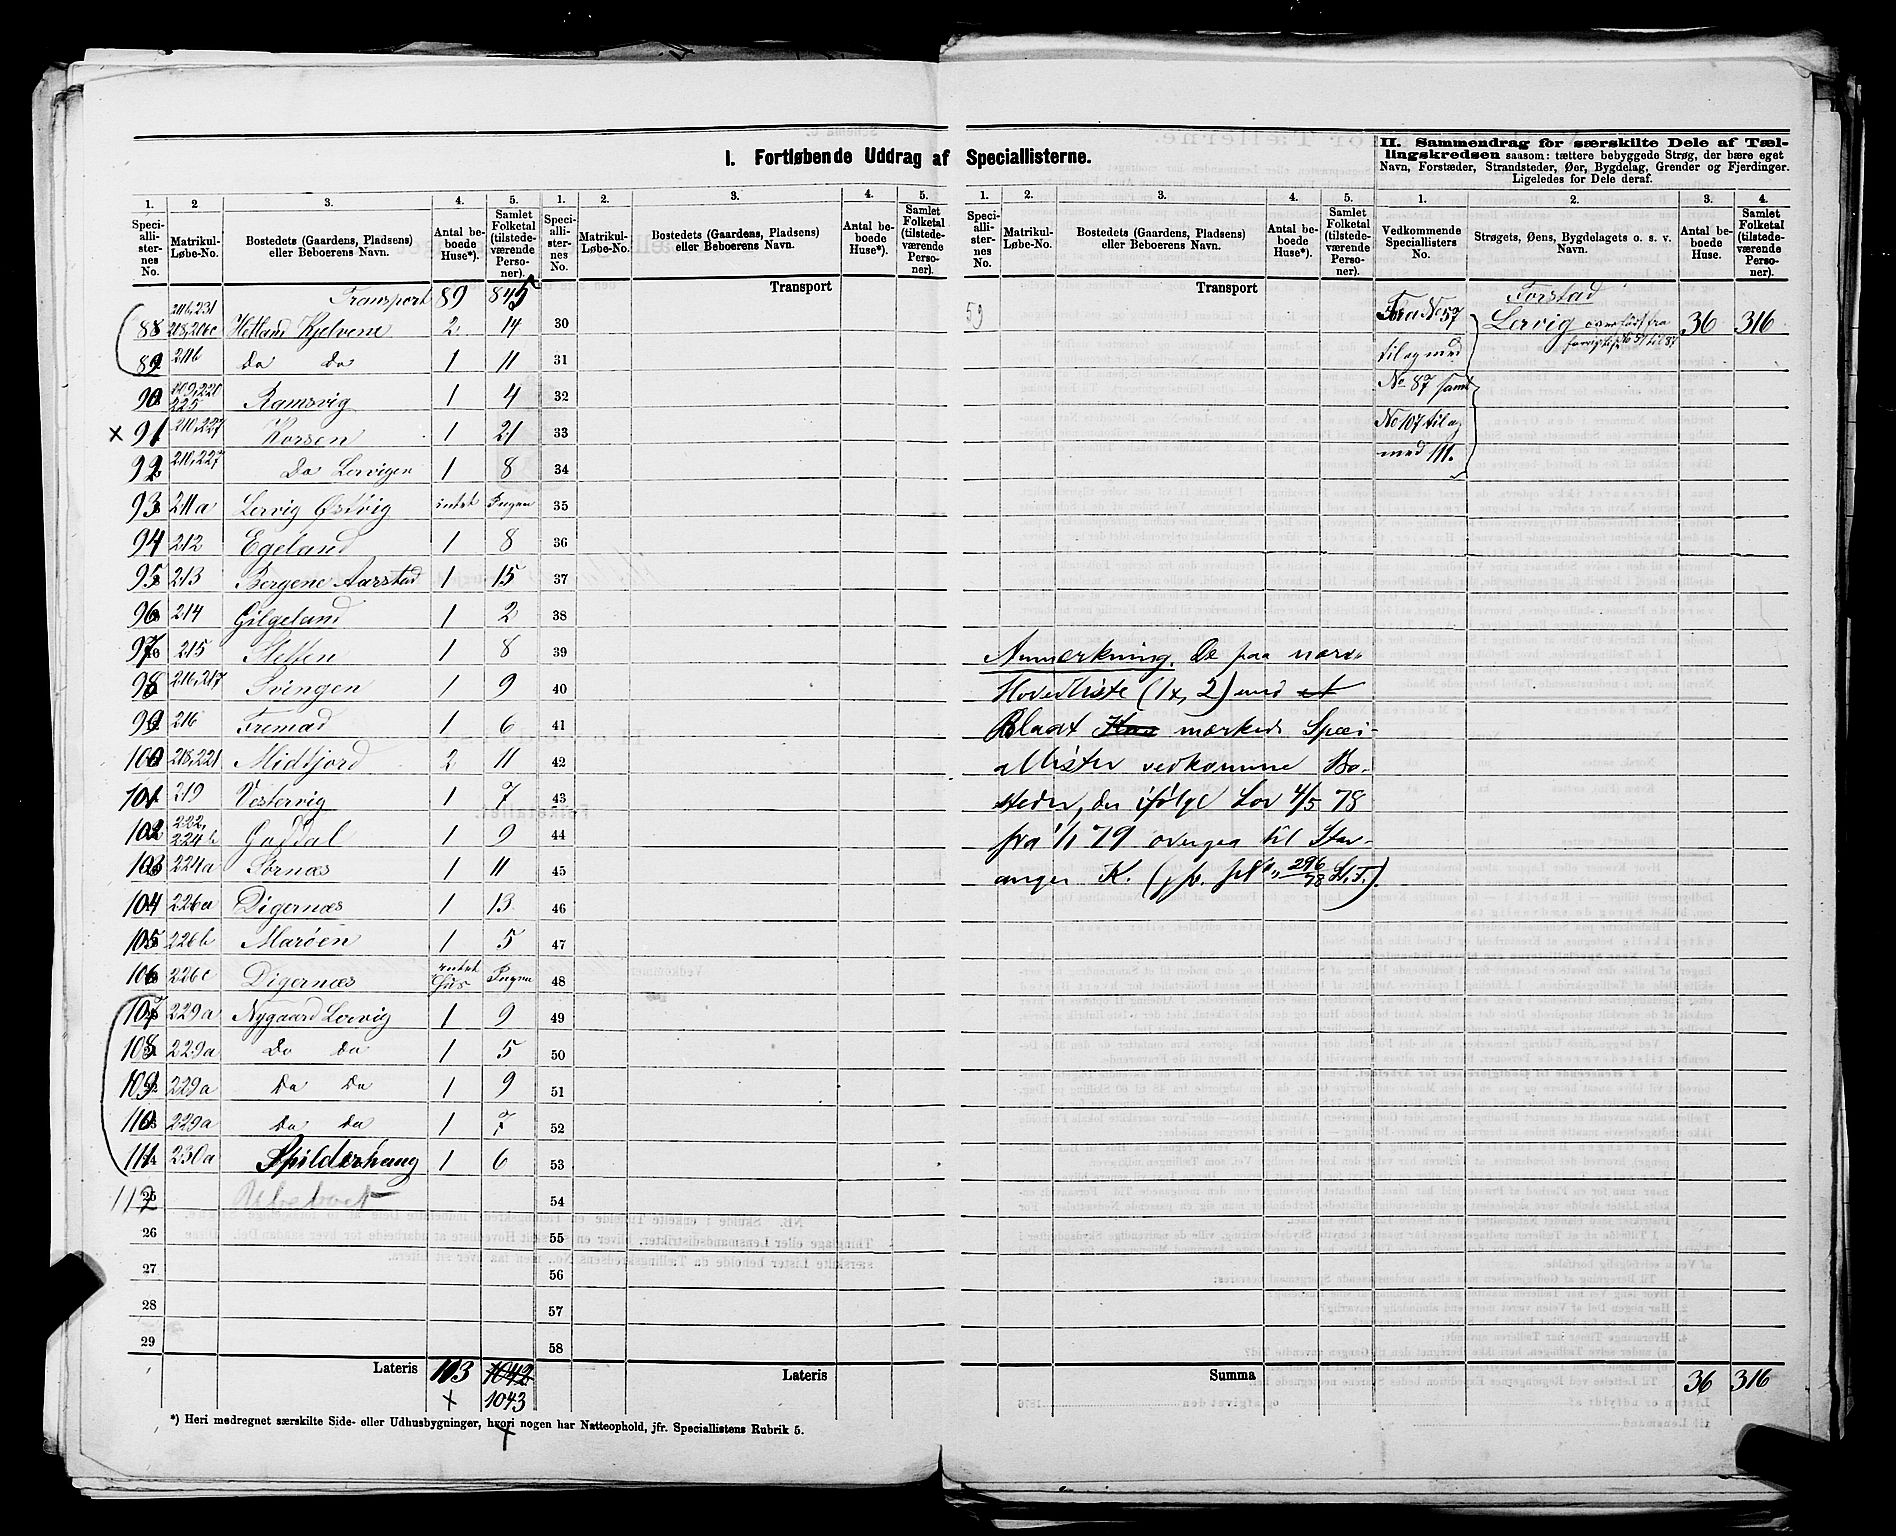 I. Fortløbende Uddrag af Speciallisterne.
II. Sammendrag for særskilte Dele af Tællingskredsen saasom: tættere bebyggede Strøg, der bære eget
Navn, Forstæder, Strandsteder, Øer, Bygdelag, Grender og Fjerdinger.
Ligeledes for Dele deraf.
1. 2 3. 4. 5. 1. 2. 3. 4. 5.
Speciallisternes No. Matrikul-Løbe-No. Bostedets (Gaardens, Pladsens) eller Beboerens Navn. Antal beboede Huse*). Samlet Folketal (tilstedeværende Personer).
Speciallisternes No. Matrikul-Løbe-No. Bostedets (Gaardens, Pladsens) eller Beboerens Navn. Antal beboede Huse*). Samlet Folketal (tilstedeværende Personer).
Transport 89 845
88 216,231 218,206c Hetland Kjelvene 2 14
89 211b Do Do 1 11
90 209,220 225 Ramsvig 1 4
x 91 210,227 Korsen 1 21
92 210,227 Do Lervigen 1 8
93 211a Lervig Østvig intet Ingen
94 212 Egeland 1 8
95 213 Bergene Aarstad 1 15
96 214 Gilgeland 1 2
97 215 Sletten 1 8
98 216,217 Svingen 1 9
99 216 Fremad 1 6
100 218,221 Midtfjord 2 11
101 219 Vestervig 1 7
102 222, 224b Goddal 1 9
103 224a Sørnæs 1 11
104 226a Digernæs 1 13
105 226b Marøen 1 5
106 226c Digernæs intet Hus Ingen
107 229a Nygaard Lervig 1 9
108 229a Do Do 1 5
109 229a Do Do 1 9
110 229a Do Do 1 7
111 230a Spilderhaug 1 6
112 25
26
27
28
29
Lateris 103 1042
x 1043
*) Heri medregnet særskilte Side- eller Udhusbygninger, hvori nogen har Natteophold, jfr. Speciallistens Rubrik 5.
Transport
30
31
32
33
34
35
36
37
38
39
40
41
42
43
44
45
46
47
48
49
50
51
52
53
54
55
56
57
58
Lateris
1. 2. 3. 4. 5.
Speciallisternes No. Matrikul-Løbe-No. Bostedets (Gaardens, Pladsens) eller Beboerens Navn. Antal beboede Huse*). Samlet Folketal (tilstedeværende Personer).
Transport
59
Anmærkning. De paa nærv.
Hovedliste (1x, 2) med et
Blaat mærkede Speci-
allister vedkomme Bo-
steder, der ifølge Lov 4/5 78
fra 1/1 79 overgaa til Stav-
anger K.
Summa
1. 2. 3. 4.
Vedkommende Speciallisters No. Strøgets, Øens, Bygdelagets o. s. v. Navn. Antal beboede Huse. Samlet Folketal (tilstedeværende Personer).
Forstad
Fra No 57 Lervig overført fra 36 316
til og med
No 87 samt
No 107 til og
med 111.
36 316